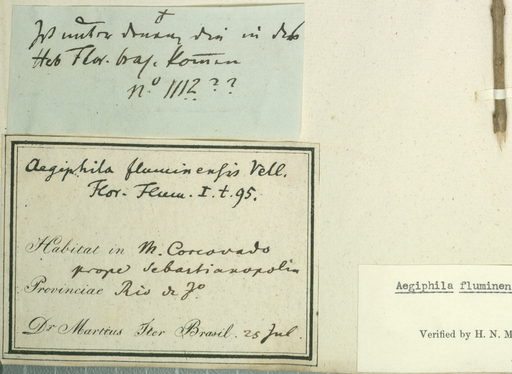 in
Heb Flor. bras.
No 1112 ??
Aegiphila fluminensis Vell.
Flor. Flum. I. t. 95.
Habitat in M. Corcovado
prope Sebastianopolin
Provinciae Rio de Jo
Dr Martius Iter Brasil. 25 Jul.
Aegiphila fluminen
Verified by H. N. M